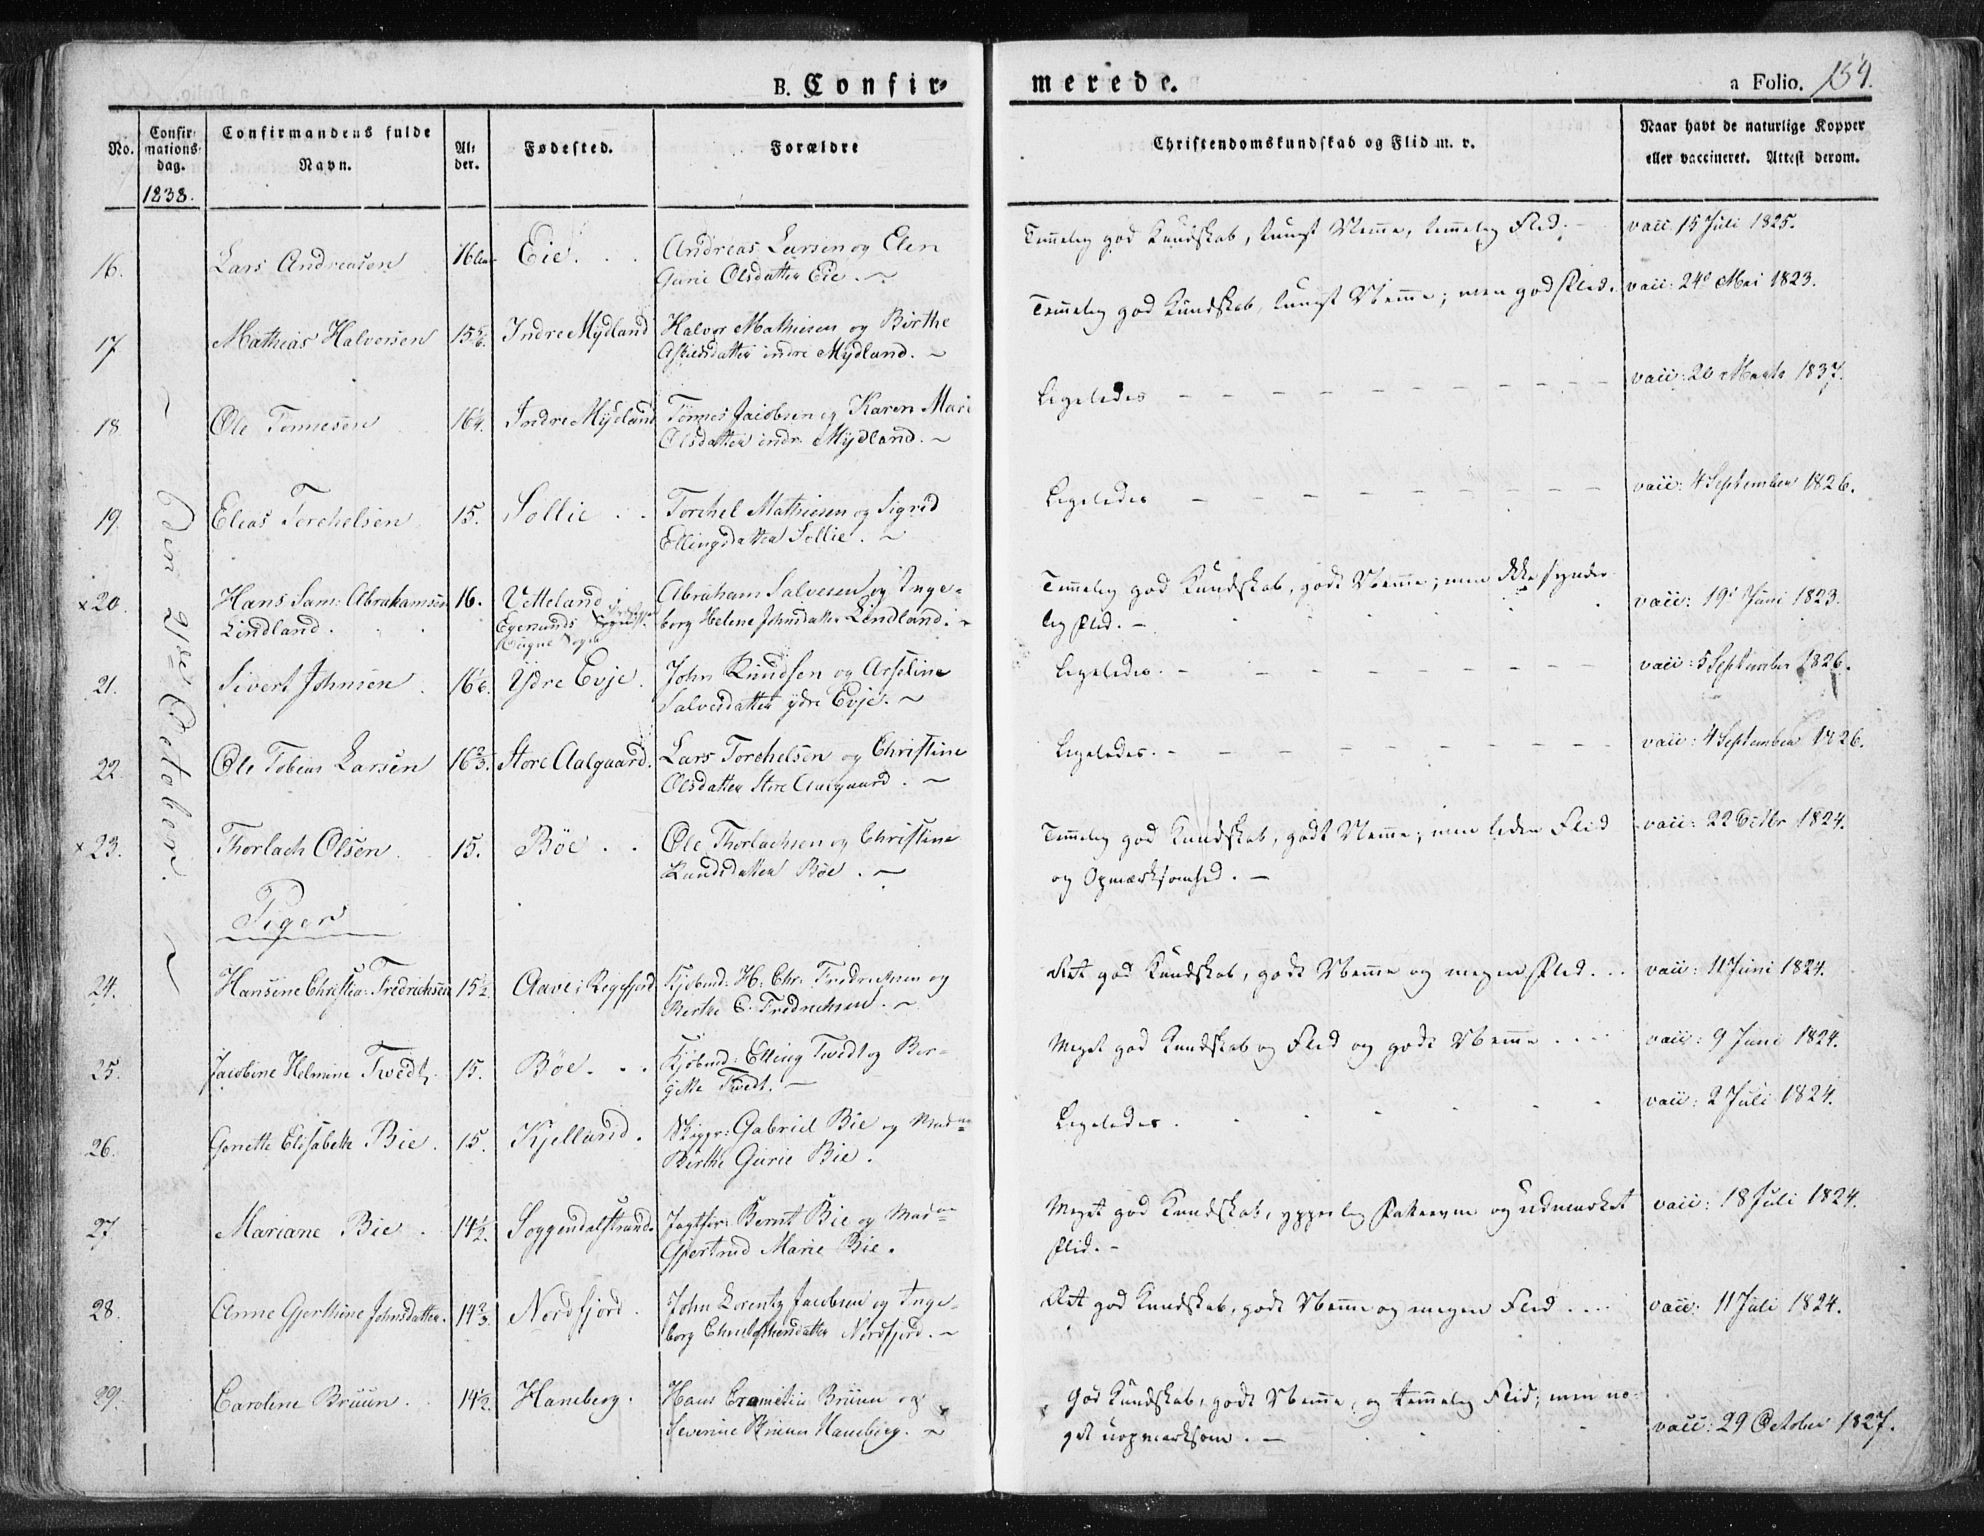 B. Confir-
merede.
a Folio. 154.
No.
Confir-
mations-
dag.
1838.
Confirmandens fulde
Navn.
Al-
der.
Fødested.
Forældre
Christendomskundskab og Flid m. v.
Naar havt de naturlige Kopper
eller vaccineret. Attest derom.
den 7de October.
16. Lars Andreasen 16 Eie. Andreas Larsen og Elen
Gurie Olsdatter Eie.
Temmelig god Kundskab, tungt Nemme, temmelig Flid. vacc: 15 Juli 1825.
17 Mathias Halvorsen 15 5/6. Indre Mydland Halvor Mathiesen og Birthe
Asbielsdatter indre Mydland.
Temmelig god Kundskab, tungt Nemme; men god Flid. vacc: 24de Mai 1823.
18. Ole Tønnesen 16 1/4. Indre Mydland Tønnes Jacobsen og Karen Mari
Olsdatter indr. Mydland.
Ligeledes vacc: 20 Marts 1837.
19. Elias Torchelsen 15. Sollie Torchel Mathiesen og Sigrid
Ellingsdatter Sollie.
Ligeledes vacc: 4 September 1826.
×20. Hans Sam: Abrahamsen 16. Vetteland i Abraham Salvesen og Inge-
Lindland. Egersunds Præstegj. borg Helene Johnsdatter Lindland.
Sogn
Temmelig god Kundskab, godt Nemme; men ikke synder-
lig Flid. vacc: 19de Juni 1823.
21. Sivert Johnsen 16 1/6. Ydre Evje. John Knudsen og Asseline
Salvesdatter ydre Evje.
Ligeledes. vacc: 5 September 1826.
22. Ole Tobias Larsen 16 2/3. Store Aalgaard. Lars Torchelsen og Christine
Olsdatter Store Aalgaard.
Ligeledes. vacc: 4 September 1826.
×23. Thorlach Olsen 15. Bøe Ole Thorlachsen og Christine
Knudsdatter Bøe.
Temmelig god Kundskab, godt Nemme; men liden Flid
og Opmærksomhed. vacc: 22 Octbr 1824.
Piger
24. Hansine Christia: Fredrichsen 15 1/2. Aave i Regefjord Kjøbmd: H: Chr: Fredrichsen og
Birthe C. Fredrichsen.
Ret god Kundskab, godt Nemme og megen Flid. vacc: 11 Juni 1824.
25. Jacobine Helmine Tvedt, 15. Bøe. Kjøbmd: Elling Tvedt og Bir-
gitte Tvedt.
Meget god Kundskab og Flid og godt Nemme vacc: 9 Juni 1824.
26. Gonette Elisabeth Bie. 15. Kjelland. Skippr: Gabriel Bie og Mad
Birthe Gurie Bie.
Ligeledes. vacc: 2 Juli 1824.
27. Mariane Bie 14 1/2. Soggendalstrand. Jagtfør: Bernt Bie og Mad
Gjertrud Marie Bie.
Meget god Kundskab, ypperlig Fatteevne og udmærket
Flid. vacc: 18 Juli 1824.
28. Anne Gjerthine Johnsdatter. 14 2/3. Nordfjord John Lorentz Jacobsen og Inge-
borg Christophersdatter Nordfjord.
Ret god Kundskab, godt Nemme og megen Flid vacc: 11 Juli 1824.
29. Caroline Bruun. 14 1/2. Haneberg. Hans Bruun og
Severine Bruun Haneberg.
God Kundskab, godt Nemme, og temmelig Flid; men no-
get uopmærksom. vacc: 29 October 1827.